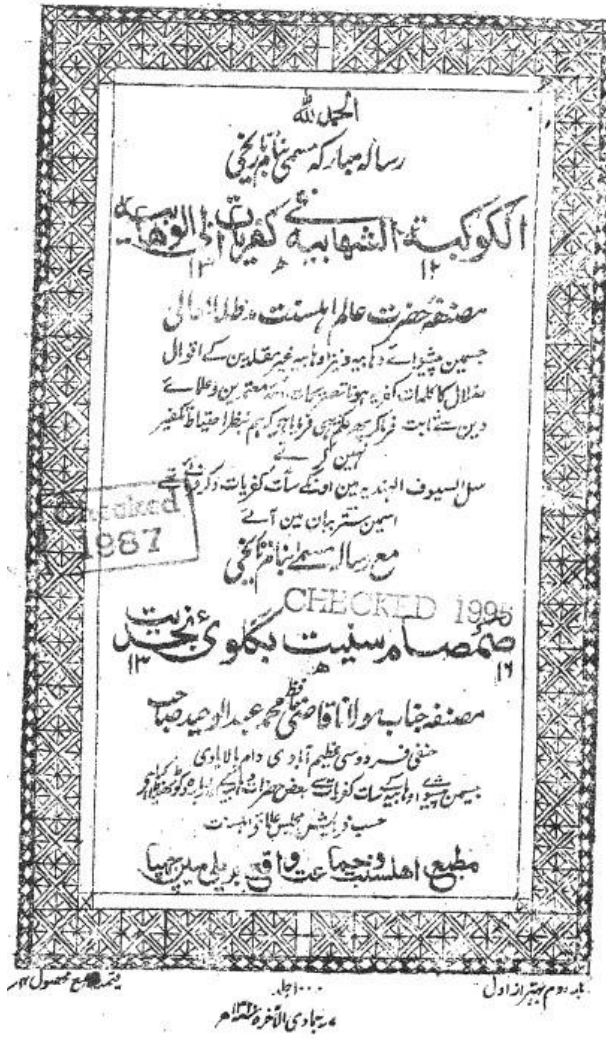 الحمد للہ
رسالہ مبارکہ مسمّیٰ بنام تاریخی
الکوکبۃ الشہابیہ فی کفریات ابی الوہابیہ
۱۳ ھ ۱۲
مصنفہ حضرت عالم اہلسنت مدظلہ العالی
جسمین پیشوائے وہابیہ ونیز وہابیہ غیر مقلدین کے اقوال
ضلال کا کلمات کفریہ ہونا تصریحات ائمہ معتمدین وعلمائے
دین سے ثابت فرماکر پھر یہی فرمایا ہے کہ ہم بنظر احتیاط تکفیر
نہین کرتے
سل السیوف الہندیہ مین اونکے سات کفریات ذکر فرمائے تھے
اسمین ستر بیان مین آئے
Checked
1987
مع رسالہ مسمّے بنام تاریخی
CHECKED 1995
صمصام سنیت بگلوئ نجدیت
۱۳ ھ ۱۶
مصنفہ جناب مولانا قاضی حافظ محمد عبد الوحید صاحب
حنفی فردوسی عظیم آبادی دام بالایادی
جسمین وہابیہ کے سات کفریات سے بعض حضرات
حسب فرمایش مجلس علمائے اہلسنت
مطبع اہلسنت وجماعت واقع بریلی مین چھپا
بار دوم بہتر از اول
۱۰۰۰ جلد
قیمت مع محصول
جمادی الآخرہ